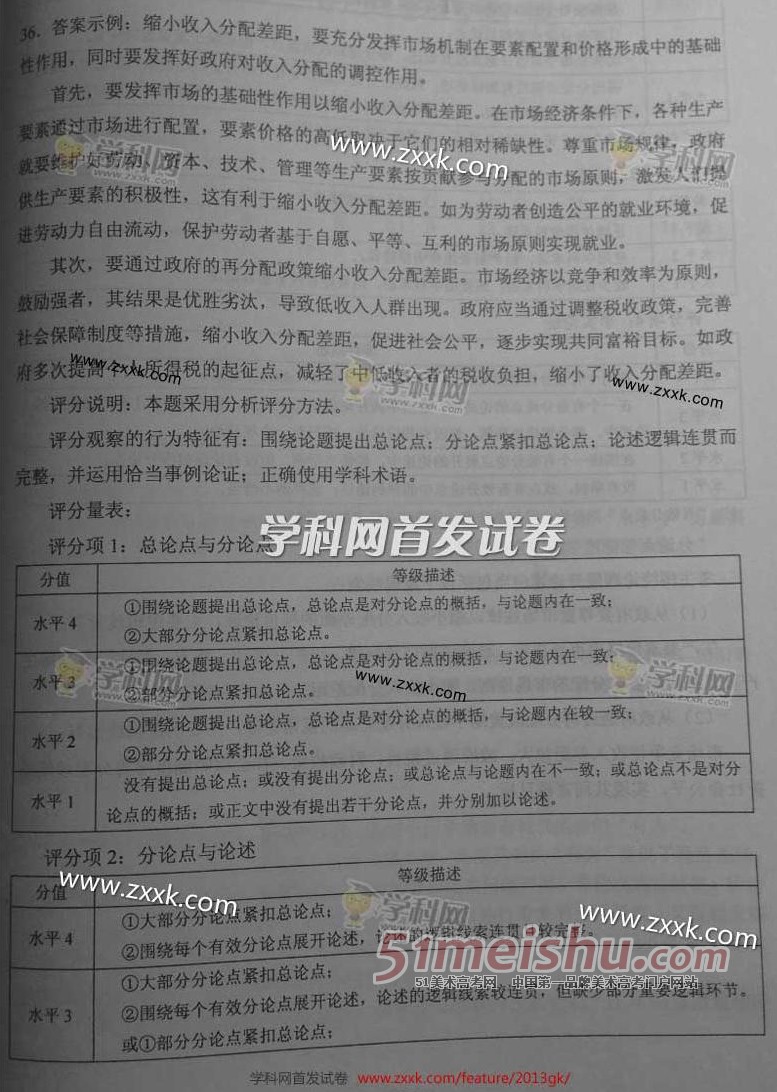 36．答案示例：缩小收入分配差距，要充分发挥市场机制在要素配置和价格形成中的基础
性作用，同时要发挥好政府对收入分配的调控作用。
首先，要发挥市场的基础性作用以缩小收入分配差距。在市场经济条件下，各种生产
要素通过市场进行配置，要素价格的高低取决于它们的相对稀缺性。尊重市场规律，政府
就要维护好劳动、资本、技术、管理等生产要素按贡献参与分配的市场原则，激发人们提
供生产要素的积极性，这有利于缩小收入分配差距。如为劳动者创造公平的就业环境，促
进劳动力自由流动，保护劳动者基于自愿、平等、互利的市场原则实现就业。
其次，要通过政府的再分配政策缩小收入分配差距。市场经济以竞争和效率为原则，
鼓励强者，其结果是优胜劣汰，导致低收入人群出现。政府应当通过调整税收政策，完善
社会保障制度等措施，缩小收入分配差距，促进社会公平，逐步实现共同富裕目标。如政
府多次提高个人所得税的起征点，减轻了中低收入者的税收负担，缩小了收入分配差距。
评分说明：本题采用分析评分方法。
评分观察的行为特征有：围绕论题提出总论点；分论点紧扣总论点；论述逻辑连贯而
完整，并运用恰当事例论证；正确使用学科术语。
评分量表：
学科网首发试卷
评分项 1：总论点与分论点
分值 等级描述
水平 4 ①围绕论题提出总论点，总论点是对分论点的概括，与论题内在一致；
②大部分分论点紧扣总论点。
水平 3 ①围绕论题提出总论点，总论点是对分论点的概括，与论题内在一致；
②部分分论点紧扣总论点。
水平 2 ①围绕论题提出总论点，总论点是对分论点的概括，与论题内在较一致；
②部分分论点紧扣总论点。
水平 1 没有提出总论点；或没有提出分论点；或总论点与论题内在不一致；或总论点不是对分
论点的概括；或正文中没有提出若干分论点，并分别加以论述。
评分项 2：分论点与论述
分值 等级描述
水平 4 ①大部分分论点紧扣总论点；
②围绕每个有效分论点展开论述，论述的逻辑线索连贯，较完整。
水平 3 ①大部分分论点紧扣总论点；
②围绕每个有效分论点展开论述，论述的逻辑线索较连贯，但缺少部分重要逻辑环节。
或①部分分论点紧扣总论点；
www.zxxk.com
学科网
zxxk.com
51meishu.com
51美术高考网 中国第一品牌美术高考门户网站
学科网首发试卷 www.zxxk.com/feature/2013gk/